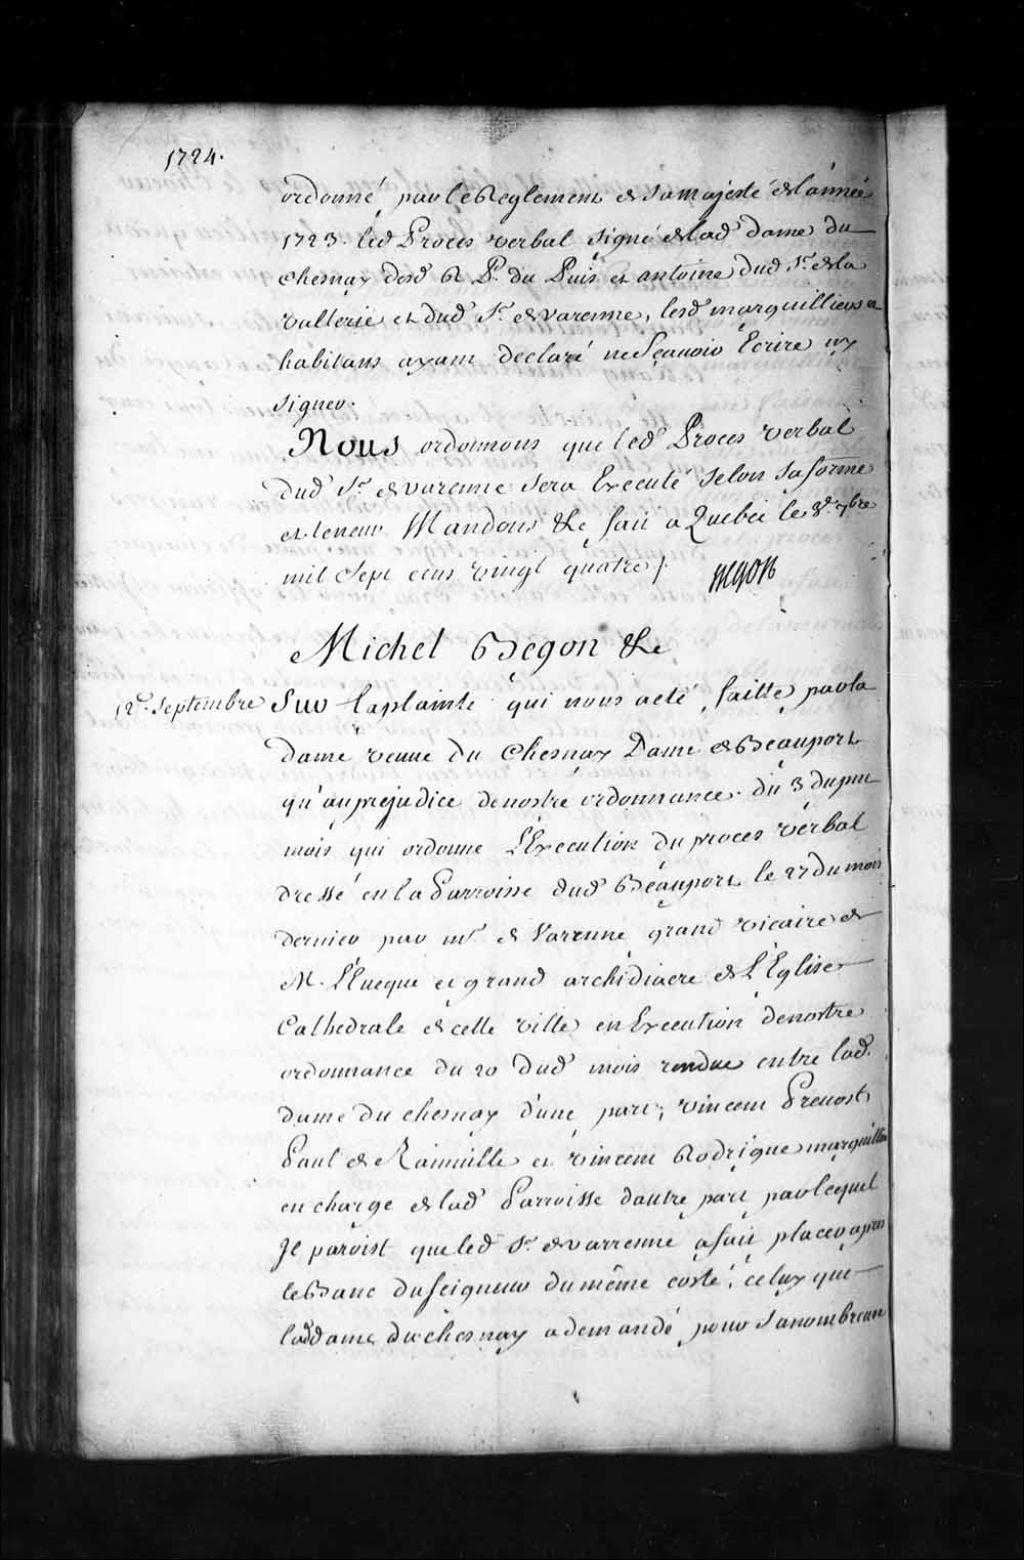 1724.
ordonné par le Reglement de sa majesté de l'année
1723. led Proces verbal signé de lad dame du
Chesnay desd R P. du Puis et antoine dud Sr. de la
vallerie et dud Sr. de varenne, lesd marguilliers et
habitans ayant declaré ne sçavoir Ecrire ny
signer.
Nous ordonnons que led Proces verbal
dud Sr. de varenne sera Executé selon sa forme
et teneur Mandons &c fait a Quebec le 7bre
mil sept cens vingt quatre /. Begon
Michel Begon &c
12e. Septembre Sur la plainte qui nous a eté faitte par la
dame veuve du Chesnay Dame de Beauport
qu'au prejudice de nostre ordonnance du 3 du pnt
mois qui ordonne l'Execution du proces verbal
dressé en la Parroisse dud Beauport le 27 du mois
dernier par mr de Varenne grand vicaire de
M. l'Eveque et grand archidiacre de l'Eglise
Cathedrale de cette ville en Execution de nostre
ordonnance du 20 dud mois rendue entre lad.
dame du chesnay d'une part; vincent Prevost
Paul de Rainville et vincent Rodrigue marguilliers
en charge de lad Parroisse dautre part par lequel
Il paroist que led Sr. de varrenne a fait placer apres
le Banc du seigneur du même costé, celuy que
lad dame duchesnay a demandé pour sa nombreuse